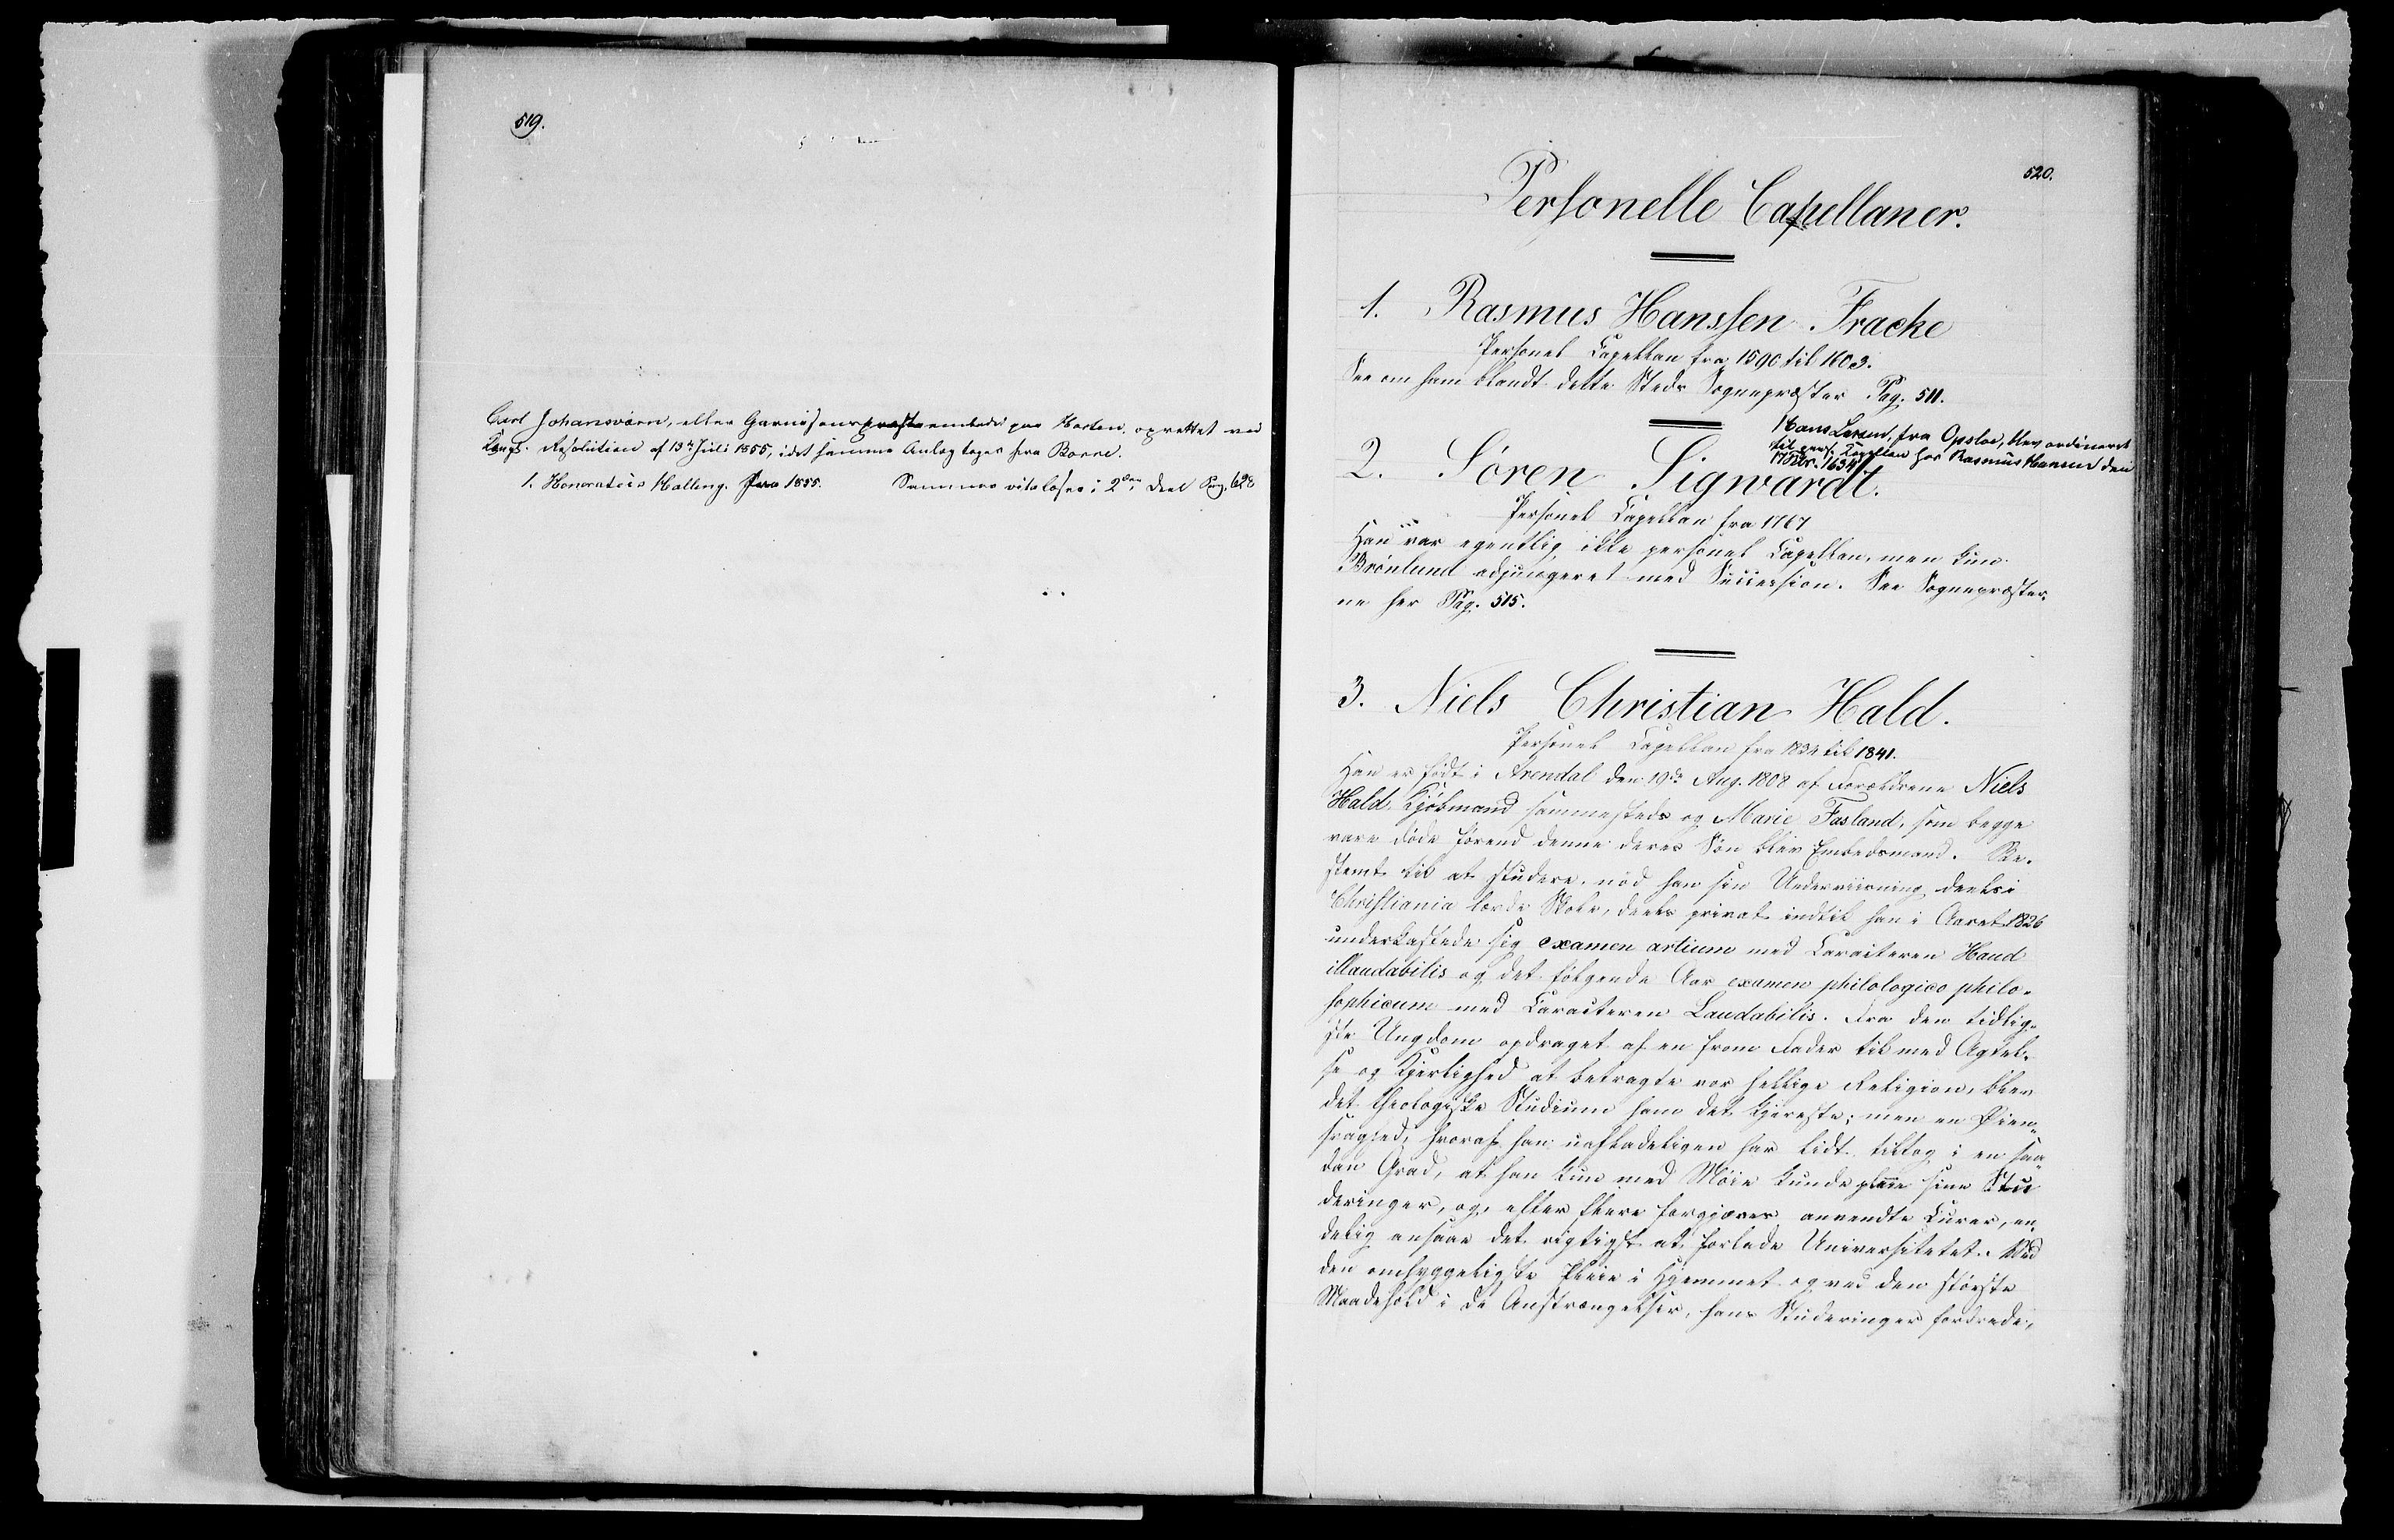 519.
Carl Johansværn, eller Garnisonsprestembedet paa Horten, oprettet ved
Kongl. Resolution af 13de Juli 1855, idet samme Anlæg toges fra Borre.
1. Honoratus Halling. Fra 1855. Sammes vita læses i 2den Deel Pag. 628
520.
Personelle Capellaner.
1. Rasmus Hanssen Fracke
Personel Capellan fra 1590 til 1603.
See om ham blandt dette Steds Sognepræster Pag. 511.
Hans Lersen, fra Opsloe, blev ordineret
til pers. Capellan hos Rasmus Hansen den
1634.
2. Sören Sigwardt.
Personel Capellan fra 1767
Han var egentlig ikke personel Capellan, men kun
Brönlund adjungeret med Succession. See Sognepræster-
ne her Pag. 515.
3. Niels Christian Hald.
Personel Capellan fra 1834 til 1841.
Han er födt i Arendal den 19de Aug. 1808 af Forældrene Niels
Hald, Kjöbmand sammesteds og Marie Fasland, som begge
vare döde förend denne deres Sön blev Embedsmand. Be-
stemt til at studere, nöd han sin Underviisning deels i
Christiania lærde Skole, deels privat indtil han i Aaret 1826
underkastede sig examen artium med Caracteren Haud
illaudabilis og det fölgende Aar examen philologico philo-
sophicum med Caracteren Laudabilis. Fra den tidlig-
ste Ungdom opdraget af en from Fader til med Agtel-
se og Kjerlighed at betragte vor hellige Religion, blev
det theologiske Studium ham det kjereste; men en Öien-
svaghed, hvoraf han uafladeligen har lidt, tiltog i en saa-
dan Grad, at han kun med Möie kunde pleie sine Stu
deringer, og, efter flere forgjæves anvendte Curer, en-
delig ansaae det rigtigst at forlade Universitetet. Ved
den omhyggeligste Pleie i Hjemmet og ved den störste
Maadehold i de Anstrængelser, hans Studeringer fordrede,